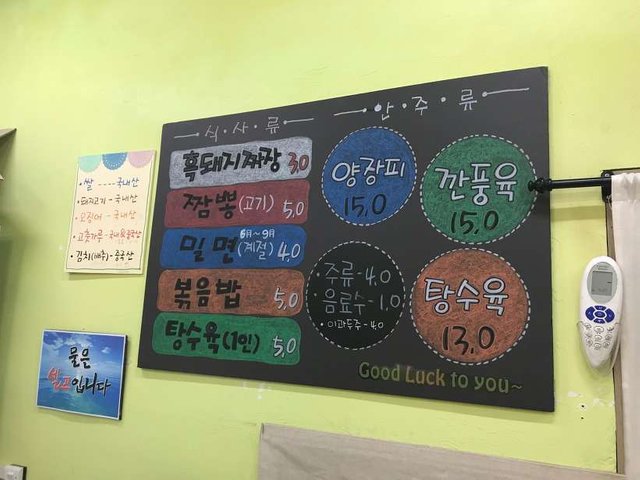 식·사·류
흑돼지짜장 3,0
짬뽕(고기) 5,0
밀면 6月~9月 (계절) 4,0
볶음밥 5,0
탕수육(1인) 5,0
안·주·류
양장피
15,0
깐풍육
15,0
·주류-4,0
음료수-1,0
·이과두주-4,0
탕수육
13,0
Good Luck to you~
·쌀----국내산
·돼지고기-국내산
·오징어-국내산
·김치(배추)-중국산
물은
셀프입니다